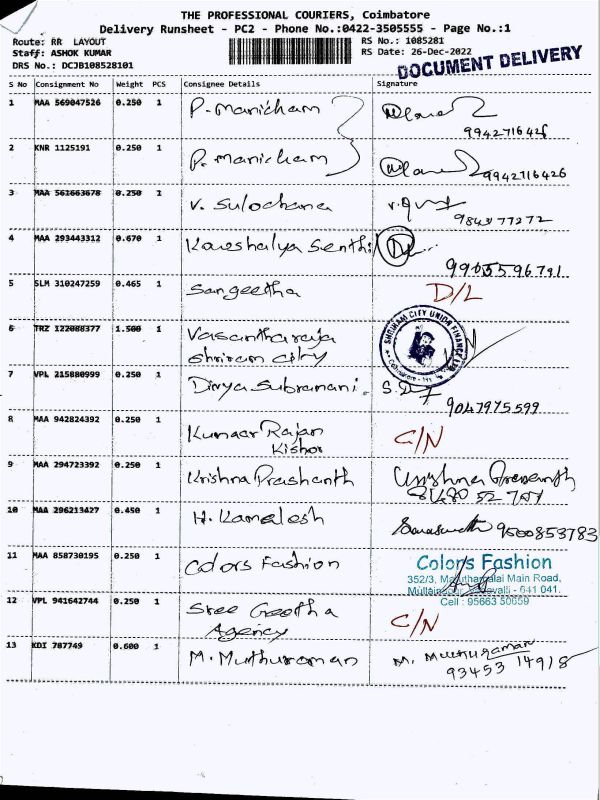 THE PROFESSIONAL COURIERS, Coimbatore
Delivery Runsheet - PC2 - Phone No.:0422-3505555 - Page No.:1
Route: RR LAYOUT
Staff: ASHOK KUMAR
DRS No.: DCJB108528101
RS No.: 1085281
RS Date: 26-Dec-2022
DOCUMENT DELIVERY
S No Consignment No Weight PCS Consignee Details Signature
1 MAA 569047526 0.250 1 P. Manicham
9942716426
2 KNR 1125191 0.250 1 P. manicham
9942716426
3 MAA 561663678 0.250 1 V. Sulochana
4 MAA 293443312 0.670 1 Kowshalya Senthi
5 SLM 310247259 0.465 1 Sangeetha D/L
6 TRZ 122088377 1.500 1 Vasantharaja
Shriram city
SHRIRAM CITY UNION FINANCE LTD
7 VPL 215880999 0.250 1 Divya Subramani. S.D
9047975599
8 MAA 942824392 0.250 1 Kumar Rajan C/N
Kishor
9 MAA 294723392 0.250 1 Krishna Prashanth
10 MAA 296213427 0.450 1 H. Kamalesh 9500853783
11 MAA 858730195 0.250 1 Colors Fashion Colors Fashion
352/3, Maruthamalai Main Road,
641 041.
Cell : 95663 50659
12 VPL 941642744 0.250 1 Sree Geetha C/N
Agency
13 KDI 787749 0.600 1 M. Muthuraman M. Muthuraman
93453 14918